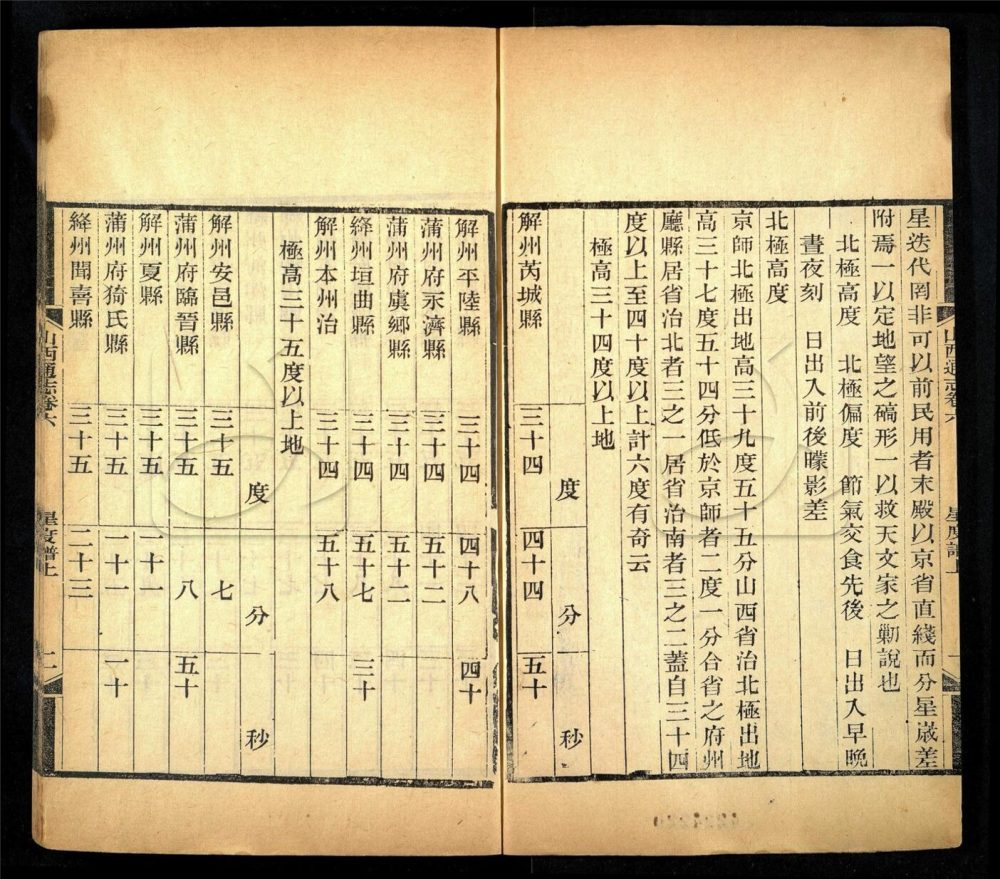 星迭代罔非可以前民用者末殿以京省直綫而分星嵗差
附焉一以定地望之碻形一以救天文家之勦說也
北極高度　北極偏度　節氣交食先後　日出入早晚
晝夜刻　日出入前後矇影差
北極高度
京師北極出地高三十九度五十五分山西省治北極出地
高三十七度五十四分低於京師者二度一分合省之府州
廳縣居省治北者三之一居省治南者三之二蓋自三十四
度以上至四十度以上計六度有奇云
極高三十四度以上地
度　分　秒
解州芮城縣　三十四　四十四　五十
山西通志卷六　星度譜上　一
解州平陸縣　三十四　四十八　四十
蒲州府永濟縣　三十四　五十二
蒲州府虞鄉縣　三十四　五十二
絳州垣曲縣　三十四　五十七　三十
解州本州治　三十四　五十八
極高三十五度以上地
度　分　秒
解州安邑縣　三十五　七
蒲州府臨晉縣　三十五　八　五十
解州夏縣　三十五　一十一
蒲州府猗氏縣　三十五　一十一　二十
絳州聞喜縣　三十五　二十三
山西通志卷六　星度譜上　二